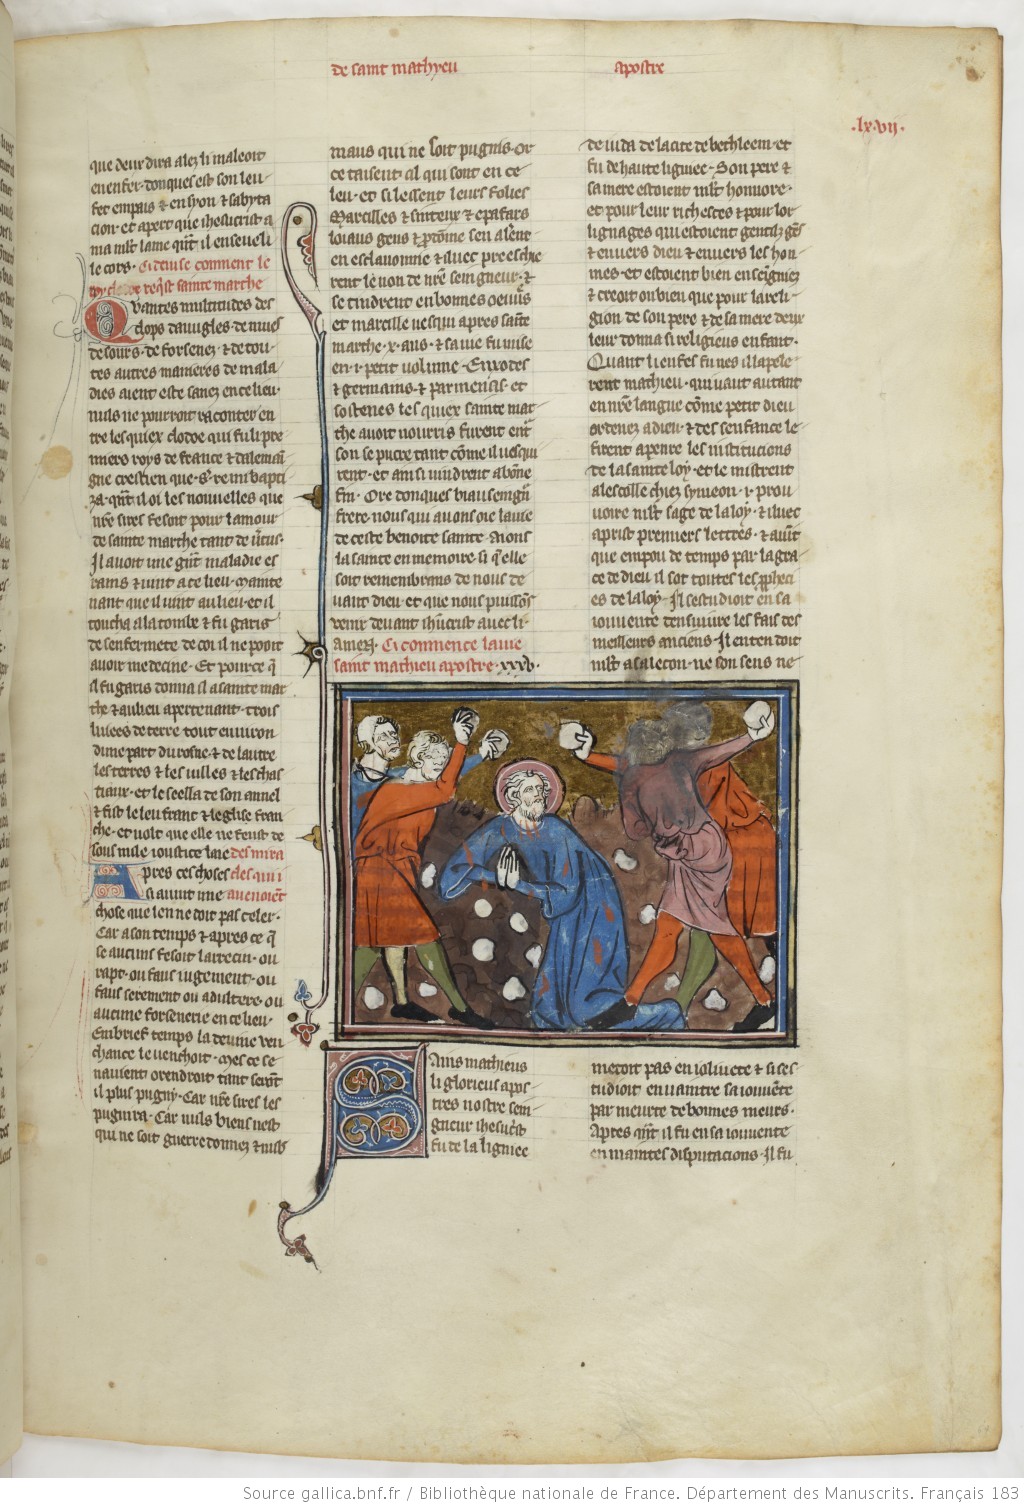 de saint mathyeu apostre
.lx.vij.
que dieu dira alez li maleoit
en enfer. donques est son leu
fet en pais & en syon & sabyta
cion. et apert que ihesucrist a
ma mlt lame qnt il enseveli
le cors. Ci devise comment le
roy requist sainte marthe
Quantes multitudes des
clops davugles. de mues
de sours. de forsenez. & de tou
tes autres manieres de mala
dies aient este sanez en ce lieu.
nuls ne pourront raconter. en
tre les quiex clodoe qui fu li pre
miers roys de france & dalemai
gne crestien que s. remi bapti
za. qnt il oi les nouvelles que
nre sires fesoit pour lamour
de sainte marthe tant de vtus.
Il avoit une gnt maladie es
rains & vint a ce lieu. Mainte
nant que il vint au lieu. et il
toucha a la tombe & fu garis
de senfermete de coi il ne pooit
avoir medecine. Et pour ce q
il fu garis donna il a sainte mar
the & au lieu apertenant. trois
liuees de terre tout environ
dune part du rosne. & de lautre
les terres & les villes & les chas
tiaux. et le seella de son annel
& fist le leu franc & leglise fran
che. et volt que elle ne feust de
sous nule ioustice laie des mira
Apres ces choses cles qui i
si avint une avenoient
chose que len ne doit pas celer.
Car a son temps & apres ce q
se aucuns fesoit larrecin. ou
rapt. ou faus iugement. ou
faus serement ou adultere. ou
aucune forsenerie en ce lieu.
En brief temps la devine ven
chance le venchoit. Mes ce se
navient orendroit tant seront
il plus pugny. Car nre sires les
pugnira. Car nuls biens nest
qui ne soit guerredonnez & nuls
maus qui ne soit pugnis. Or
ce taisent cil qui sont en ce
leu. et si lessent leurs folies
Marcilles & sinteux & epafars
loiaus gens & ptoine sen alerent
en esclavonnie & illuec preeschie
rent le non de nre seigneur. &
se tindrent en bonnes oeuvres
et marcille vesqui apres sainte
marthe .x. ans. & sa vie fu mise
en .i. petit volume. Evvodes
& germains. & parmenas. et
sostenes les quiex sainte mar
the avoit nourris furent entr
son sepucre tant come il vesqui
rent. et ainsi vindrent a bone
fin. Ore donques biau seingnr
frere nous qui avons oie la vie
de ceste benoite sainte. Aions
la sainte en memoire si q elle
soit remembrans de nous de
vant dieu. et que nous puissons
venir devant ihucrist avec li.
amen. Ci commence la vie
saint mathieu apostre .xxxv.
Sains mathieus
li glorieus apos
tres nostre sein
gneur ihesucrist
fu de la ligniee
de iuda de la cite de bethleem. et
fu de haute ligniee. Son pere &
sa mere estoient mlt honnore.
et pour leur richesces & pour lor
lignages qui estoient gentilz gens
& envers dieu & envers les hom
mes. et estoient bien enseignez
& creoit on bien que pour la reli
gion de son pere & de sa mere dieux
leur donna si religieus enfant.
Quant li enfes fu nes il lapele
rent mathieu. qui vaut autant
en nre langue come petit dieu
ordenez a dieu. & des senfance le
firent aprenre les institucions
de la sainte loy. et le mistrent
a lescolle chiez symeon .i. prou
voire mlt sage de la loy. & iluec
aprist premiers lettres. & avint
que em pou de temps par la gra
ce de dieu il sot toutes les propheci
es de la loy. Il sestudioit en sa
iouvente densuivre les fais des
meilleurs anciens. Il entendoit
mlt a sa lecon. ne son sens ne
metoit pas en ioliuete & si ses
tudioit en vaintre sa iouvente
par meurte de bonnes meurs.
Apres qnt il fu en sa iouvente
en maintes disputacions. Il fu
Source gallica.bnf.fr / Bibliothèque nationale de France. Département des Manuscrits. Français 183